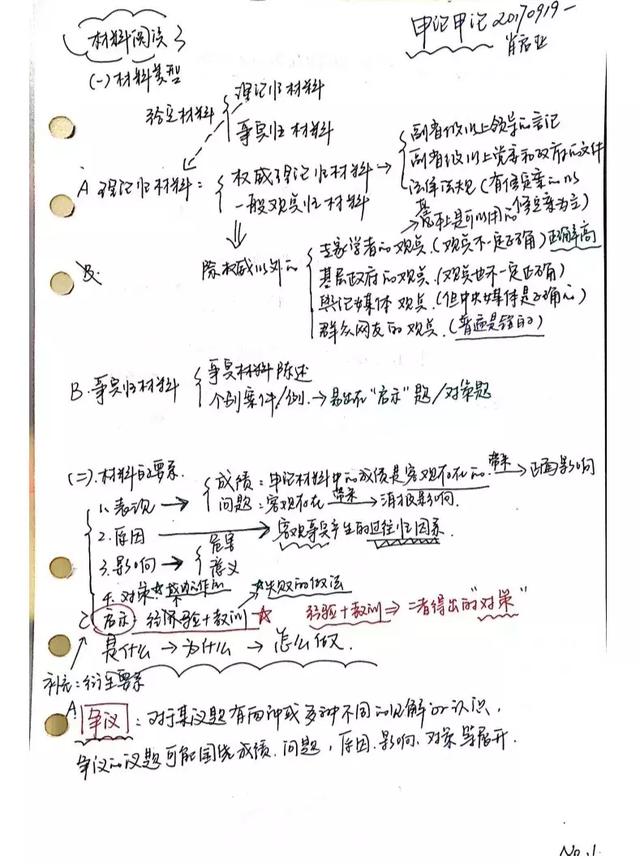 材料阅读
申论申论 20170919-
肖启业
(一)材料类型
给定材料 { 理论性材料
事实性材料
A 理论性材料: { 权威理论性材料 → { 副省级以上领导的言论
一般观点性材料
副省级以上党委和政府的文件
法律法规(有修定案的以
修定案为主)
基本上是可以用的
除权威以外的 { 专家学者的观点.(观点不一定正确)正确率高
基层政府的观点.(观点也不一定正确)
舆论媒体观点.(但中央媒体是正确的)
群众网友的观点.(普遍是错的)
B.
B.事实性材料 { 事实材料陈述
个别案件/例.→易出在"启示"题/对策题
(二).材料的要素.
1.表现 → { 成绩:申论材料中的成绩是客观存在的. 带来→正面影响
问题:客观存在 带来→消极影响.
2.原因 → 客观事实产生的过往性因素.
3.影响 → { 危害
意义
4.对策 ☆成功的做法
☆失败的做法
启示:经济 经验+教训 ☆ 经验+教训 ⇒ 二者得出的"对策"
是什么 → 为什么 → 怎么做.
补充:衍生要素
A. 争议:对于某议题有两种或多种不同的见解的认识,
争议的议题可能围绕成绩.问题,原因.影响.对策等展开.
No.1.